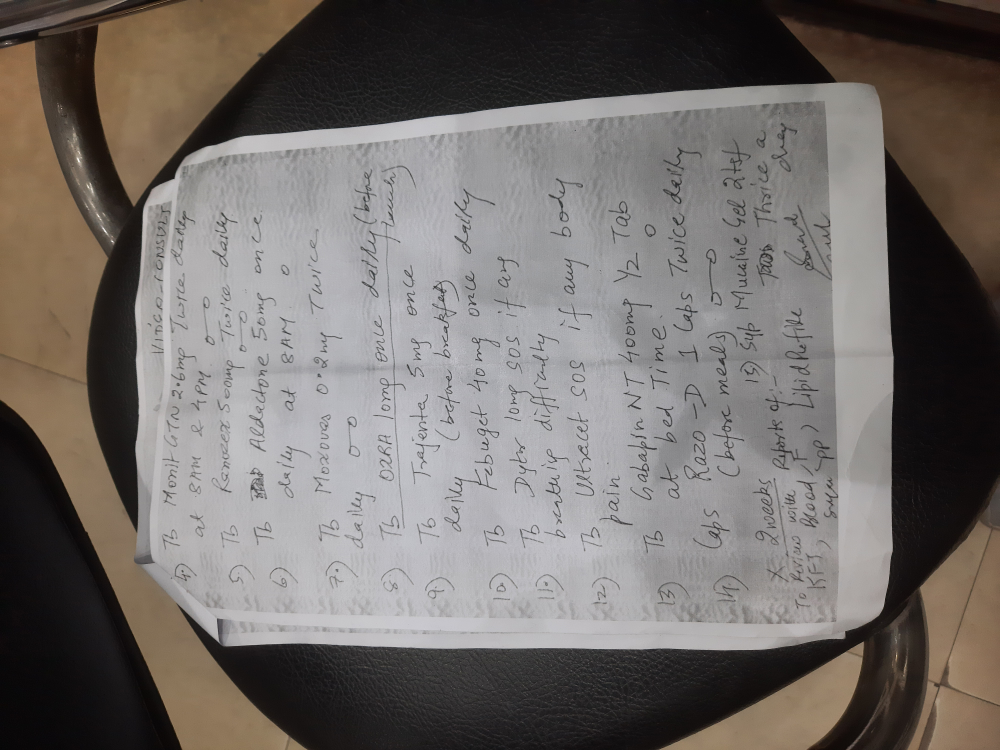 4.) Tb Monit GTN 2.6mg Twice daily
at 8AM & 4PM.
5) Tb Ranozex 500mg Twice daily
6) Tb Aldactone 50mg once
daily at 8AM.
7.) Tb Moxovas 0.2mg Twice
daily
8) Tb OZRA 10mg once daily (before
lunch)
9) Tb Trajenta 5mg once
daily (before breakfast)
10.) Tb Febuget 40mg once daily
11.) Tb Dytor 10mg SOS if any
breathing difficulty
12) Tb Ultracet SOS if any body
pain.
13) Tb Gabapin NT 400mg 1/2 Tab
at bed Time.
14.) Caps Razo-D 1 Caps Twice daily
(before meals)
15) Syp Mucaine Gel 2tsf
Thrice a
day
x 2 weeks
To Review with Reports of:-
KFT, Blood Sugar F, PP, Lipid Profile